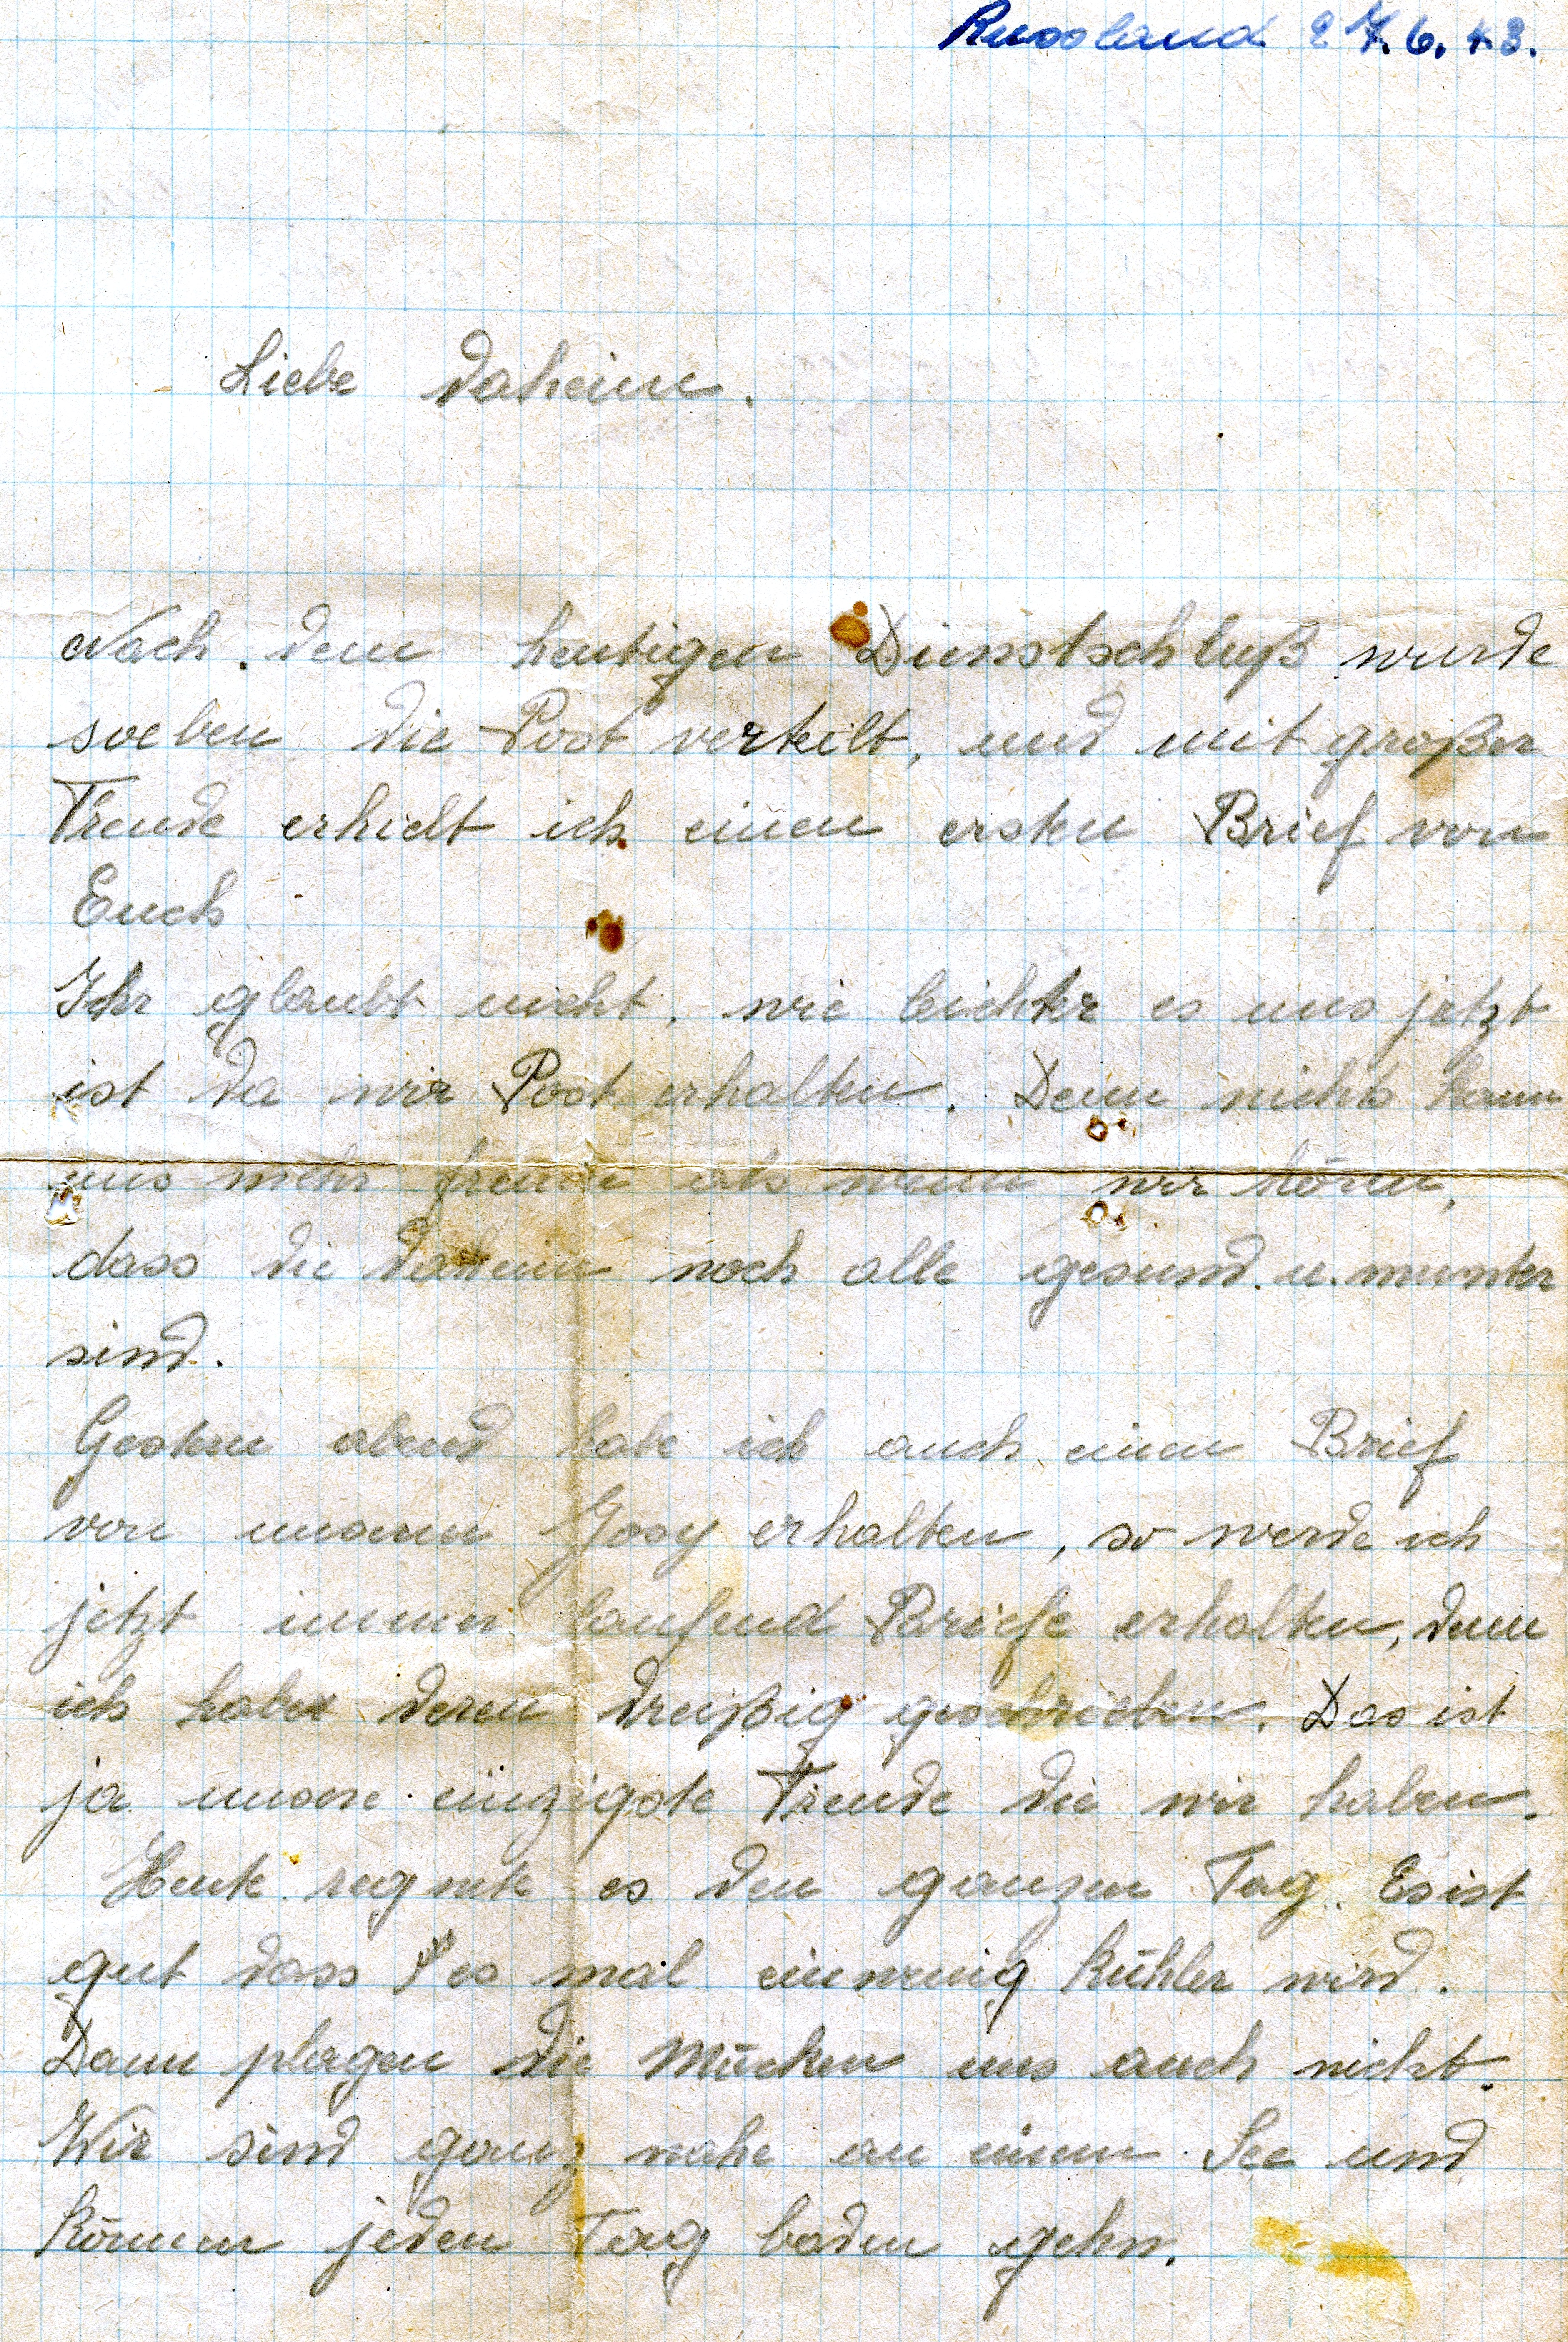 Russland 27.6.43.
Liebe daheim.
Nach dem heutigen Dienstschluß wurde
soeben die Post verteilt, und mit großer
Freude erhielt ich einen ersten Brief von
Euch
Ihr glaubt nicht, wie leichter es uns jetzt
ist da wir Post erhalten. Denn nichts kann
uns mehr freuen als wenn wir hören,
dass die daheim noch alle gesund u. munter
sind.
Gestern abend habe ich auch einen Brief
von unserm Jossy erhalten, so werde ich
jetzt immer laufend Briefe erhalten, denn
ich habe deren dreißig geschrieben. Das ist
ja unsere einzigste Freude die wir haben.
Heute regnete es den ganzen Tag. Es ist
gut dass es mal ein wenig kühler wird.
Dann plagen die Mücken uns auch nicht.
Wir sind ganz nahe an einem See und
können jeden Tag baden gehn.